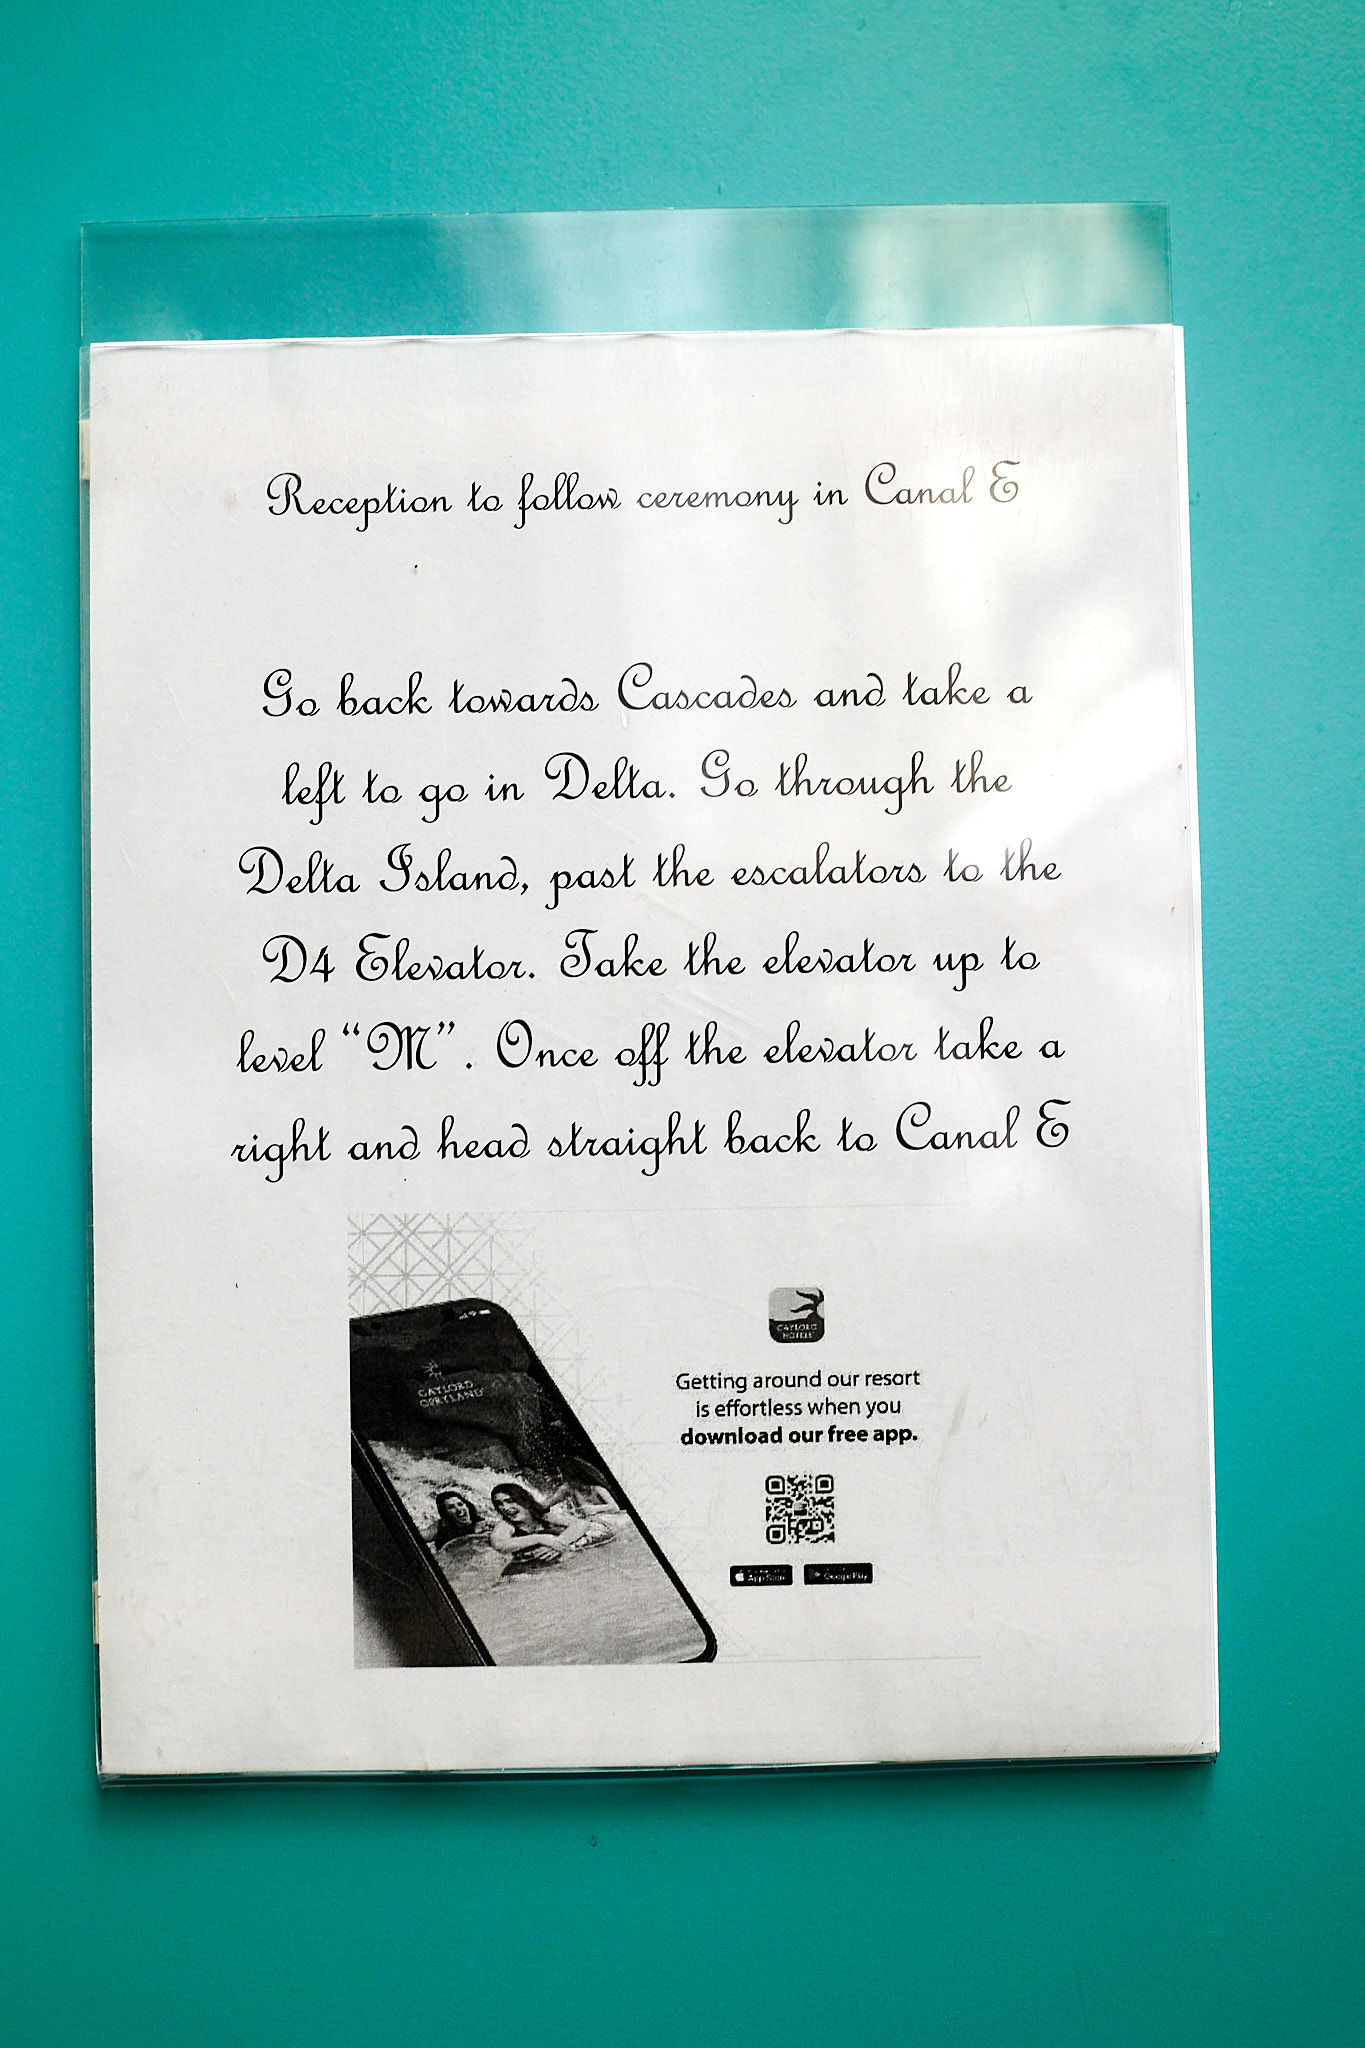 Reception to follow ceremony in Canal E
Go back towards Cascades and take a
left to go in Delta. Go through the
Delta Island, past the escalators to the
D4 Elevator. Take the elevator up to
level “M”. Once off the elevator take a
right and head straight back to Canal E
GAYLORD
OPRYLAND
GAYLORD
HOTELS
Getting around our resort
is effortless when you
download our free app.
App Store
Google Play